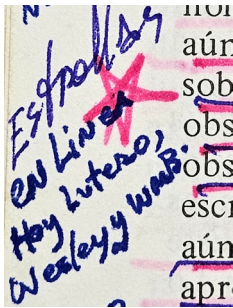 Estrellas
en Línea
Hoy Lutero,
Wesley y WMB.
aún
sob
obs
obs
escr
aúm
apr